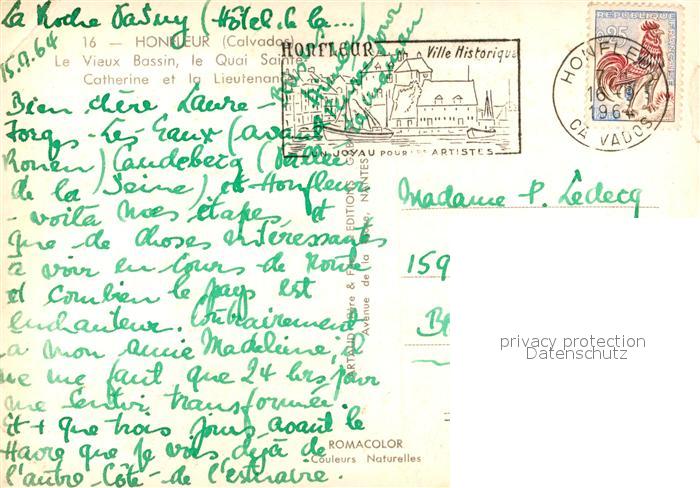 La Roche Vasouy (Hôtel de la...)
15.9.64
16 — HONFLEUR (Calvados)
Le Vieux Bassin, le Quai Sainte
Catherine et la Lieutenan
Bien chère Laure-
Forges-Les-Eaux (avant
Rouen) Caudebec (Vallée
de la Seine) et Honfleur
- voilà mes étapes, et
que de choses intéressantes
à voir en cours de route
et combien le pays est
enchanteur. Contrairement
à mon amie Madeleine, il
ne me faut que 24 hrs pour
me sentir transformée.
Et + que trois jours avant le
Havre que je vois déjà de
l'autre côté de l'estuaire.
HONFLEUR
Ville Historique
UN JOYAU POUR ARTISTES
HONFLEUR
16 -9
1964
CALVADOS
REPUBLIQUE FRANCAISE
0,25
EDITIONS
Avenue de la NANTES
Madame P. Leclecq
159
B
privacy protection
Datenschutz
ROMACOLOR
Couleurs Naturelles